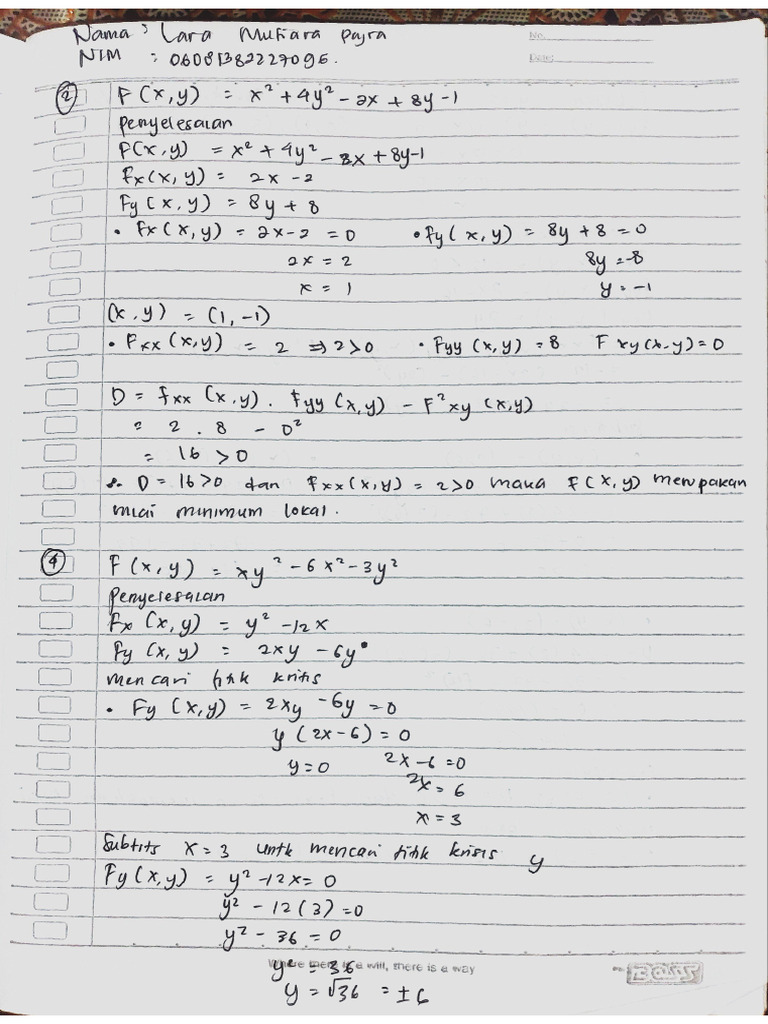 Nama : Lara Mutiara Pajra
No.
NIM : 06081382227095.
Date:
② F(x,y) = x² + 4y² - 2x + 8y - 1
penyelesaian
F(x,y) = x² + 4y² - 2x + 8y-1
Fx(x,y) = 2x - 2
Fy(x,y) = 8y + 8
• Fx(x,y) = 2x-2 = 0 • fy(x,y) = 8y + 8 = 0
2x = 2 8y = -8
x = 1 y = -1
(x,y) = (1,-1)
• Fxx(x,y) = 2 ⇒ 2>0 • Fyy(x,y) = 8 Fxy(x,y) = 0
D = fxx(x,y) . fyy(x,y) - F²xy(x,y)
= 2 . 8 - 0²
= 16 > 0
∴ D = 16>0 dan fxx(x,y) = 2>0 maka f(x,y) merupakan
nilai minimum lokal.
④ F(x,y) = xy² - 6x² - 3y²
penyelesaian
Fx(x,y) = y² - 12x
Fy(x,y) = 2xy - 6y
mencari titik kritis
• Fy(x,y) = 2xy - 6y = 0
y(2x-6) = 0
y=0 2x-6 =0
2x = 6
x = 3
Subtits x = 3 untk mencari titik krisis y
Fy(x,y) = y² - 12x = 0
y² - 12(3) = 0
y² - 36 = 0
Where there is a will, there is a way
BOSS
y² = 36
y = √36 = ±6